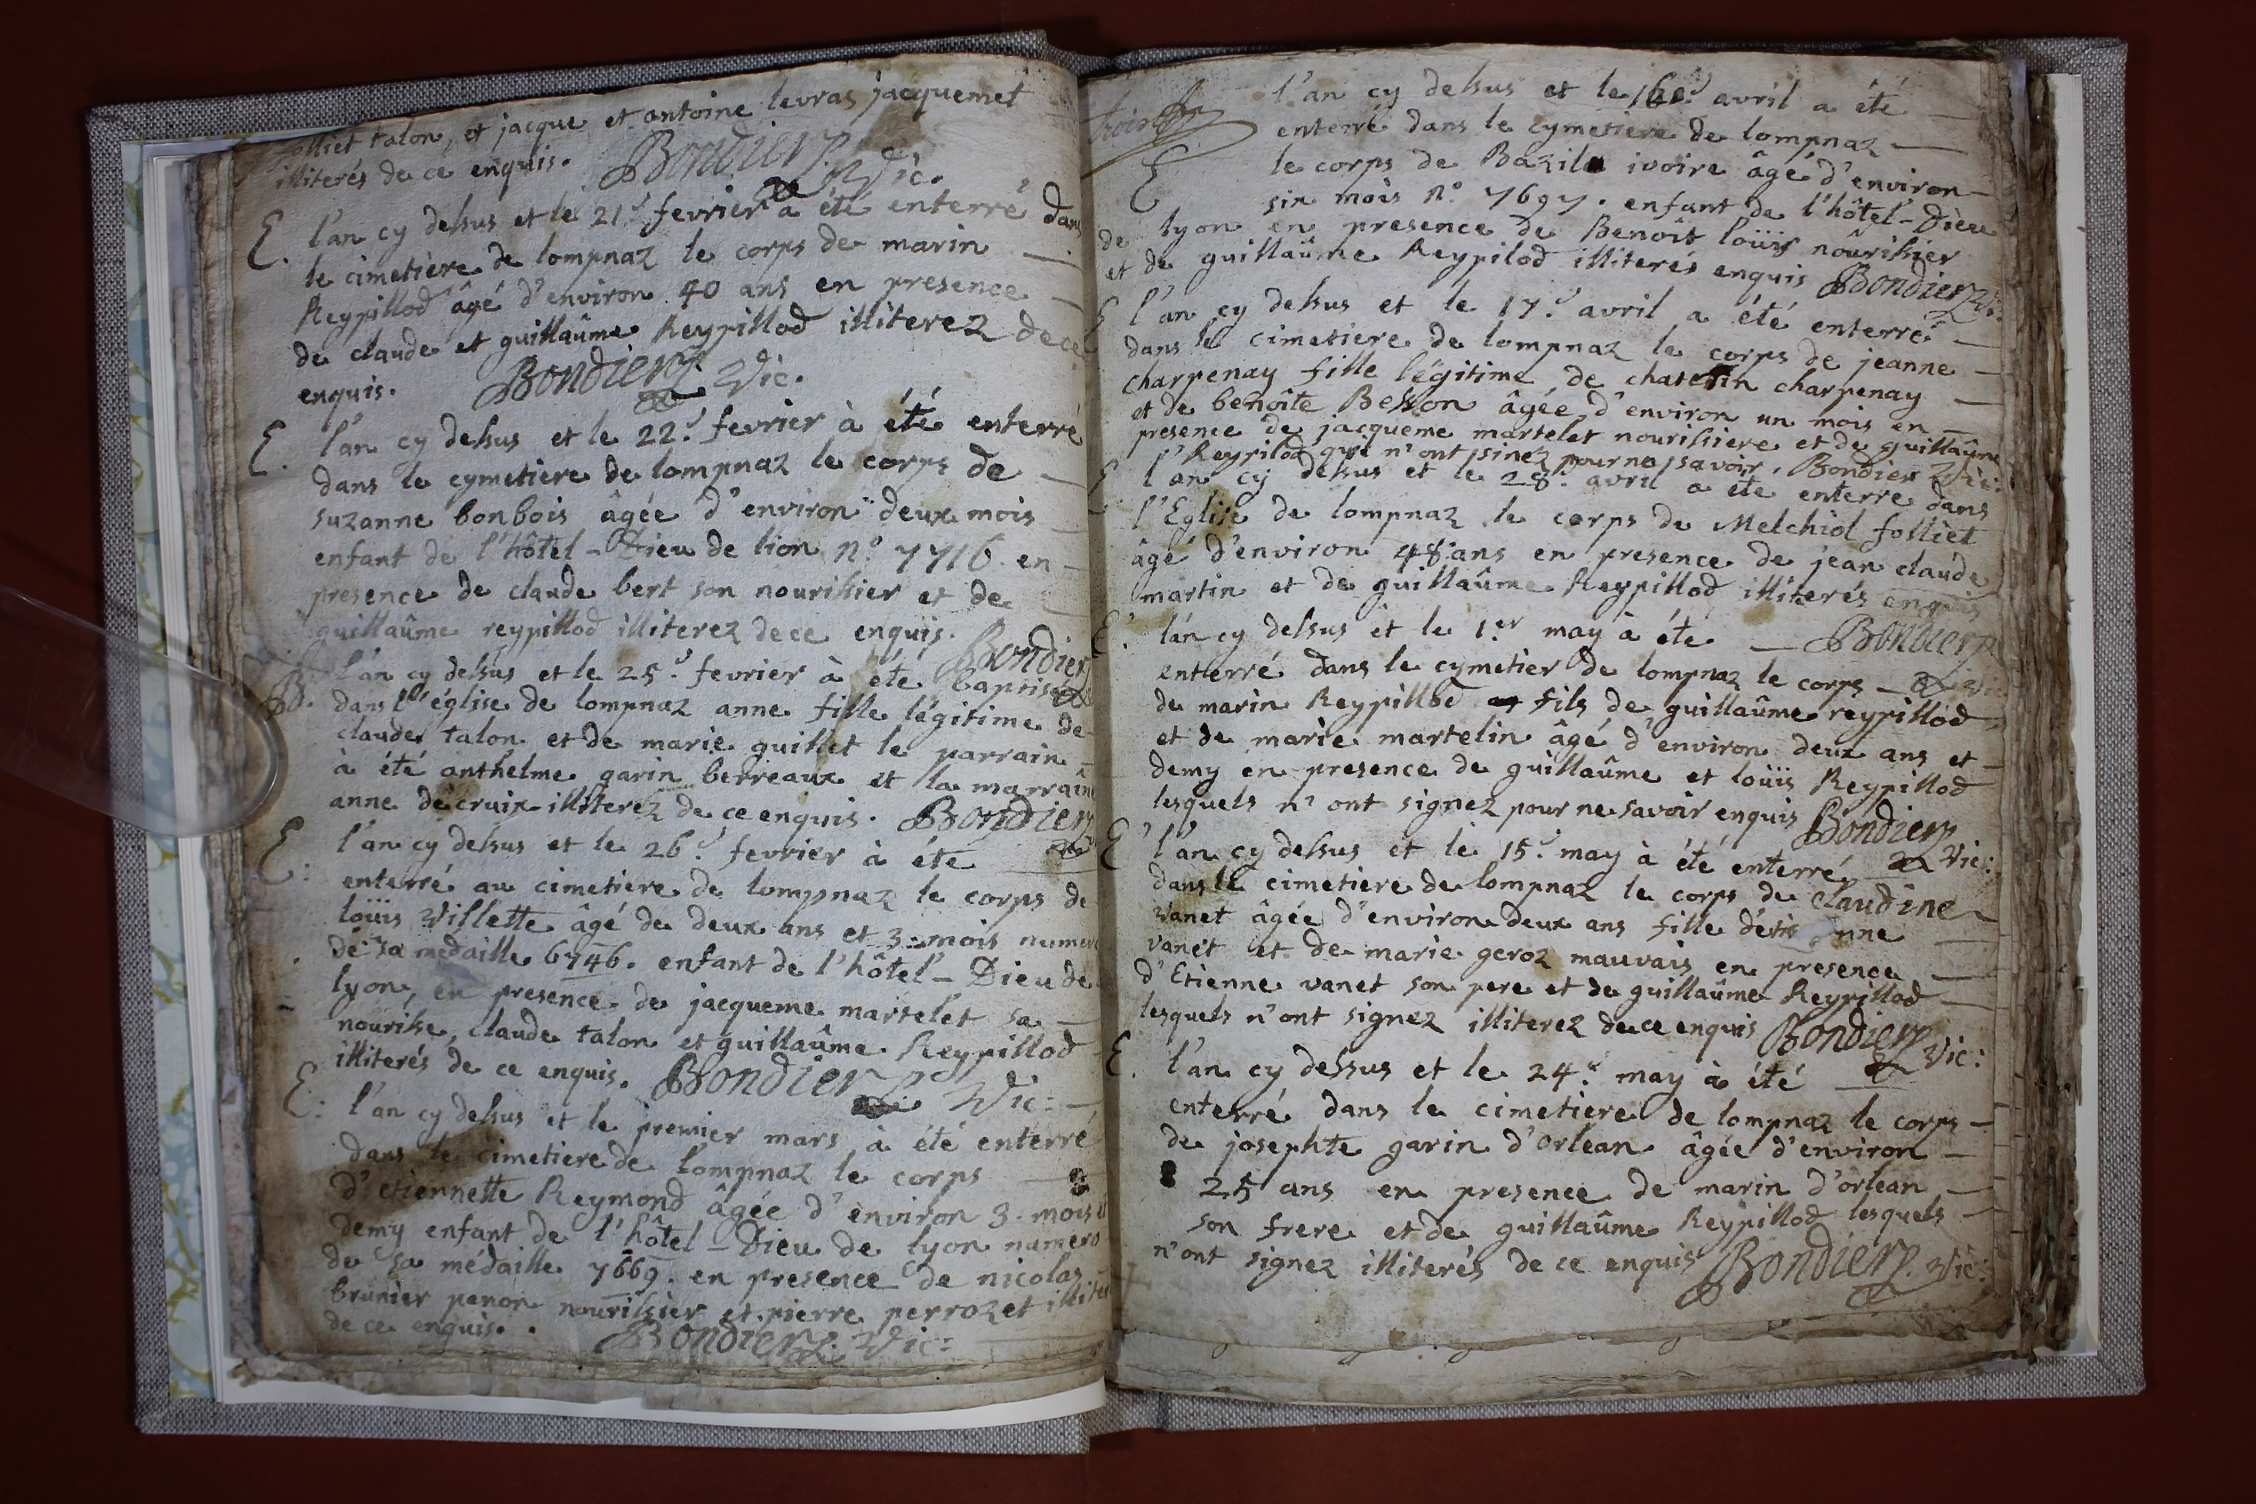 folliet talon, et jacque et antoine levras jacquemet
illiterés de ce enquis. Bondier Vic.
E. l'an cy dessus et le 21e fevrier a été enterré dans
le cimetière de lompnaz le corps de marin
Reypillod âgé d'environ 40 ans en presence
de claude et guillaûme Reypillod illiterez de ce
enquis. Bondier Vic.
E. l'an cy dessus et le 22e fevrier à été enterré
dans le cymetiere de lompnaz le corps de
suzanne bonbois âgée d'environ deux mois
enfant de l'hôtel-Dieu de lion n.o 7716. en
presence de claude bert son nourissier et de
guillaûme reypillod illiterez de ce enquis. Bondier
B. l'an cy dessus et le 25e fevrier à été baptisée
dans l'église de lompnaz anne fille légitime de
claude talon et de marie guillet le parrain
à été anthelme garin berreaux et la marraine
anne décruix illiterez de ce enquis. Bondier
E: l'an cy dessus et le 26e fevrier à été
enterré au cimetiere de lompnaz le corps de
loüis Villette âgé de deux ans et 3 mois numero
de sa médaille 6746. enfant de l'hôtel-Dieu de
lyon, en presence de jacqueme martelet sa
nourisse, claude talon et guillaûme Reypillod
illiterés de ce enquis. Bondier Vic:
E: l'an cy dessus et le premier mars à été enterré
dans le cimetiere de lompnaz le corps
d'etiennette Reymond âgée d'environ 3. mois et
demy enfant de l'hôtel-Dieu de lyon numero
de sa médaille 7669. en presence de nicolas
brunier panon nourissier et pierre perrozet
de ce enquis. Bondier Vic:
l'an cy dessus et le 16e avril a été
enterré dans le cymetiere de lompnaz
E le corps de Bazile ivoire âgé d'environ
six mois n.o 7697. enfant de l'hôtel-Dieu
de lyon en presence de Benoit loüis nôurissier
et de guillaûme Reypilod illiterés enquis Bondier Vic:
E l'an cy dessus et le 17e avril a été enterré
dans le cimetiere de lompnaz le corps de jeanne
charpenay fille légitime de chatelin charpenay
et de benoîte Besson âgée d'environ un mois en
presence de jacqueme martelet nourissiere et de guillaûme
Reypilod qui n'ont sinez pour ne savoir. Bondier Vic:
E l'an cy dessus et le 28e avril a été enterré dans
l'Eglise de lompnaz le corps de Melchiol folliet
âgé d'environ 48 ans en presence de jean claude
martin et de guillaûme Reypillod illiterés enquis
E. l'an cy dessus et le 1er may à été Bondier
enterré dans le cymetier de lompnaz le corps Vic
de marin Reypillod fils de guillaûme reypillod
et de marie martelin âgé d'environ deux ans et
demy en presence de guillaûme et loüis Reypillod
lesquels n'ont signez pour ne savoir enquis Bondier
E l'an cy dessus et le 15e may à été enterré Vic:
dans le cimetiere de lompnaz le corps de Claudine
vanet âgée d'environ deux ans fille
vanet et de marie geroz mauvais en presence
d'Etienne vanet son pere et de guillaûme Reypillod
lesquels n'ont signez illiterez de ce enquis Bondier
E. l'an cy dessus et le 24e may à été Vic:
enterré dans le cimetiere de lompnaz le corps
de josephte garin d'orlean âgée d'environ
25 ans en presence de marin d'orlean
son frere et de guillaûme Reypillod lesquels
n'ont signez illiterés de ce enquis Bondier. Vic: